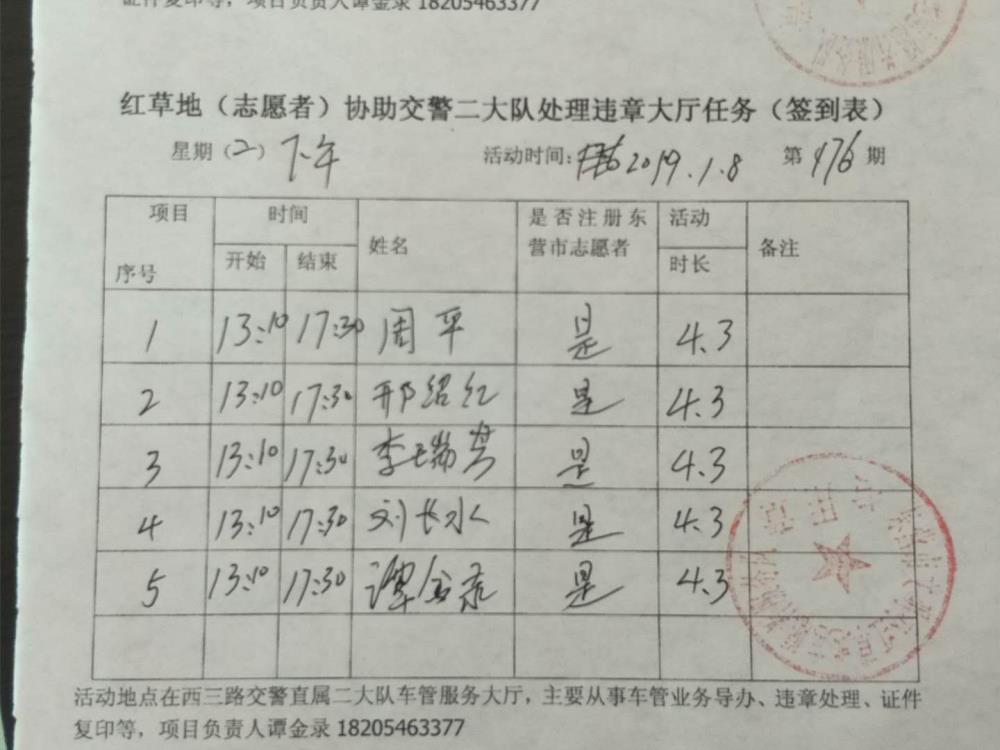 证件复印等，项目负责人谭金录 18205463377
红草地（志愿者）协助交警二大队处理违章大厅任务（签到表）
星期（二）下午 活动时间：2019.1.8 第476期
项目 时间 姓名 是否注册东 活动 备注
序号 开始 结束 营市志愿者 时长
1 13:10 17:30 周平 是 4.3
2 13:10 17:30 邢绍红 是 4.3
3 13:10 17:30 李瑞芳 是 4.3
4 13:10 17:30 刘长水 是 4.3
5 13:10 17:30 谭金录 是 4.3
活动地点在西三路交警直属二大队车管服务大厅，主要从事车管业务导办、违章处理、证件
复印等，项目负责人谭金录 18205463377